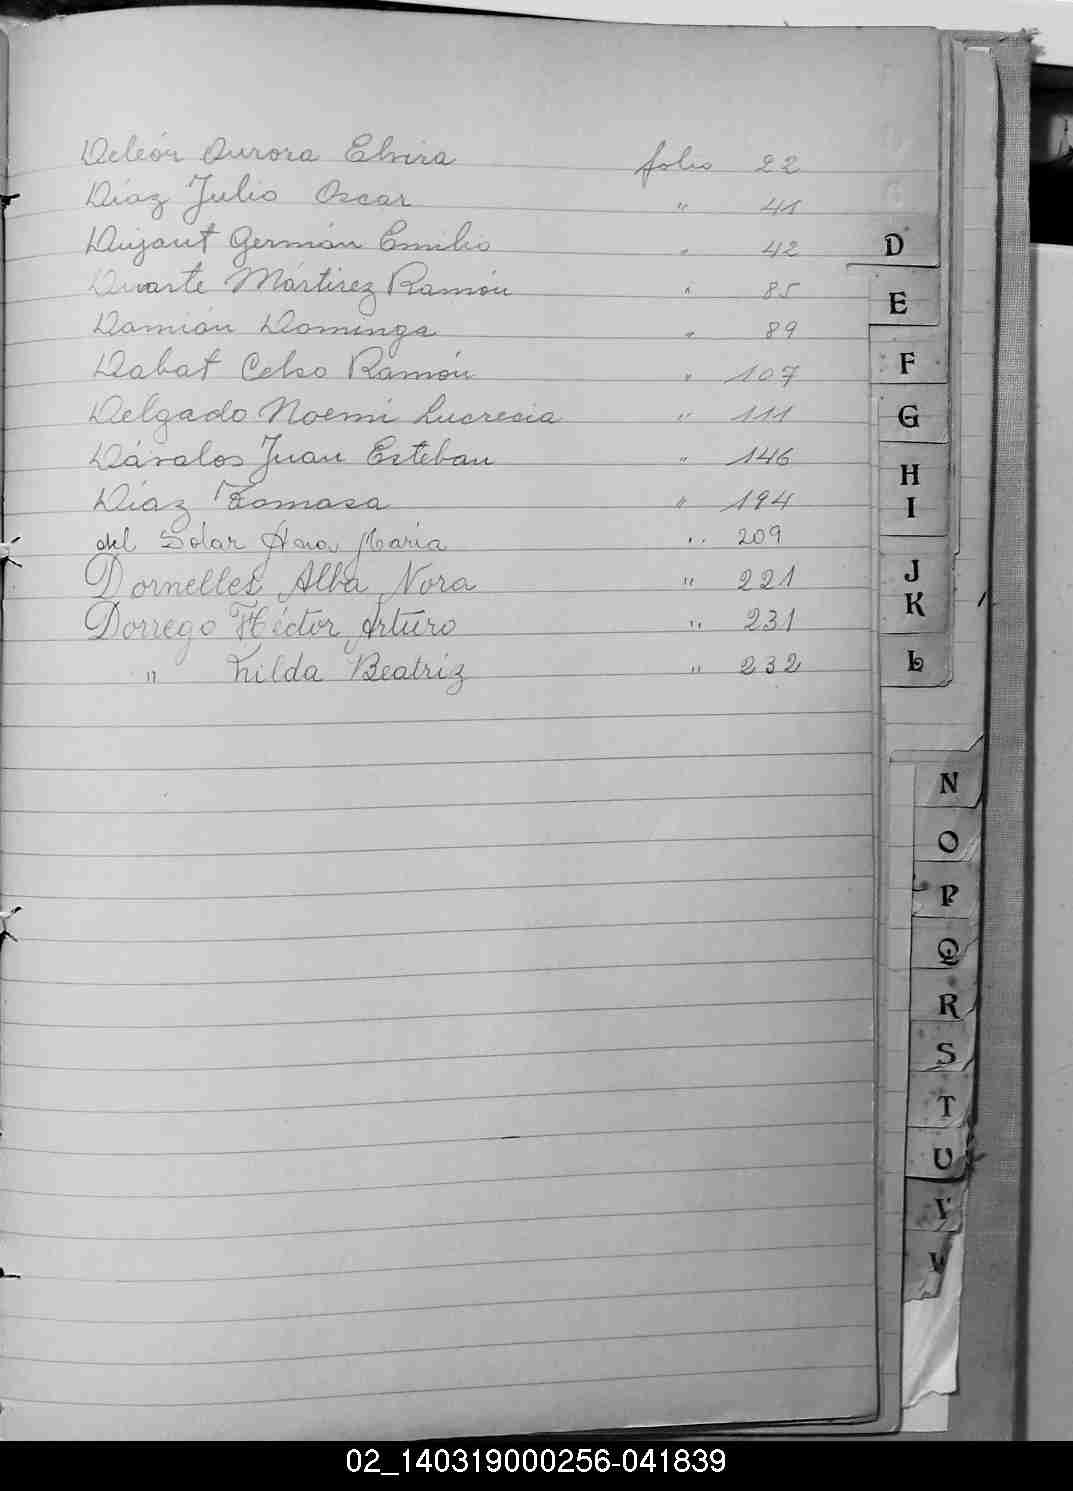 Deleón Aurora Elvira folio 22
Díaz Julio Oscar " 41
Germán Emilio " 42
Duarte Mártirez Ramón " 85
Damián Dominga " 89
Dabat Celso Ramón " 107
Delgado Noemí Lucrecia " 111
Dávalos Juan Esteban " 146
Díaz Tomasa " 194
del Solar Ana María " 209
Dornelles Alba Nora " 221
Dorrego Héctor Arturo " 231
" hilda Beatriz " 232
D
E
F
G
H
I
J
K
L
N
O
P
Q
R
S
T
U
V
W
02_140319000256-041839